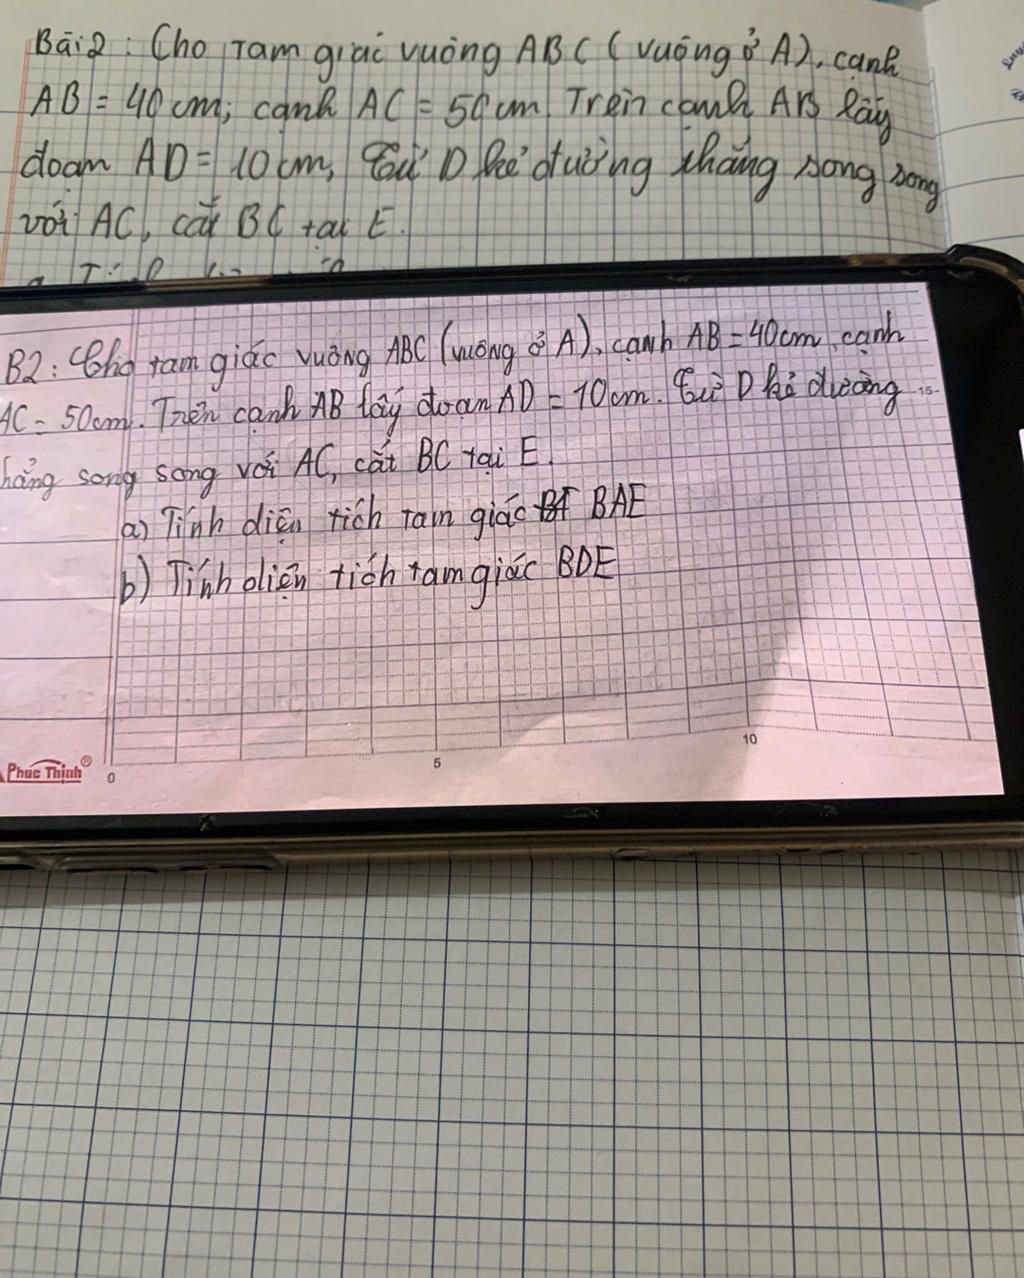 Bài 2: Cho tam giác vuông ABC (vuông ở A), cạnh
AB = 40 cm; cạnh AC = 50 cm. Trên cạnh AB lấy
đoạn AD = 10 cm, Từ D kẻ đường thẳng song song
với AC, cắt BC tại E.
B2: Cho tam giác vuông ABC (vuông ở A), cạnh AB = 40cm, cạnh
AC = 50cm. Trên cạnh AB lấy đoạn AD = 10cm. Từ D kẻ đường
hẳng song song với AC, cắt BC tại E.
a) Tính diện tích tam giác BAE
b) Tính diện tích tam giác BDE
15
Phuc Thinh®
0 5 10